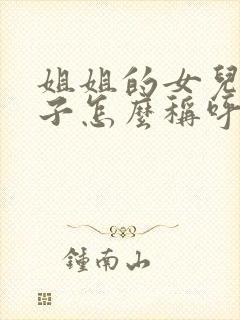 姐姐的女兒
子怎麼稱呼
鍾南山